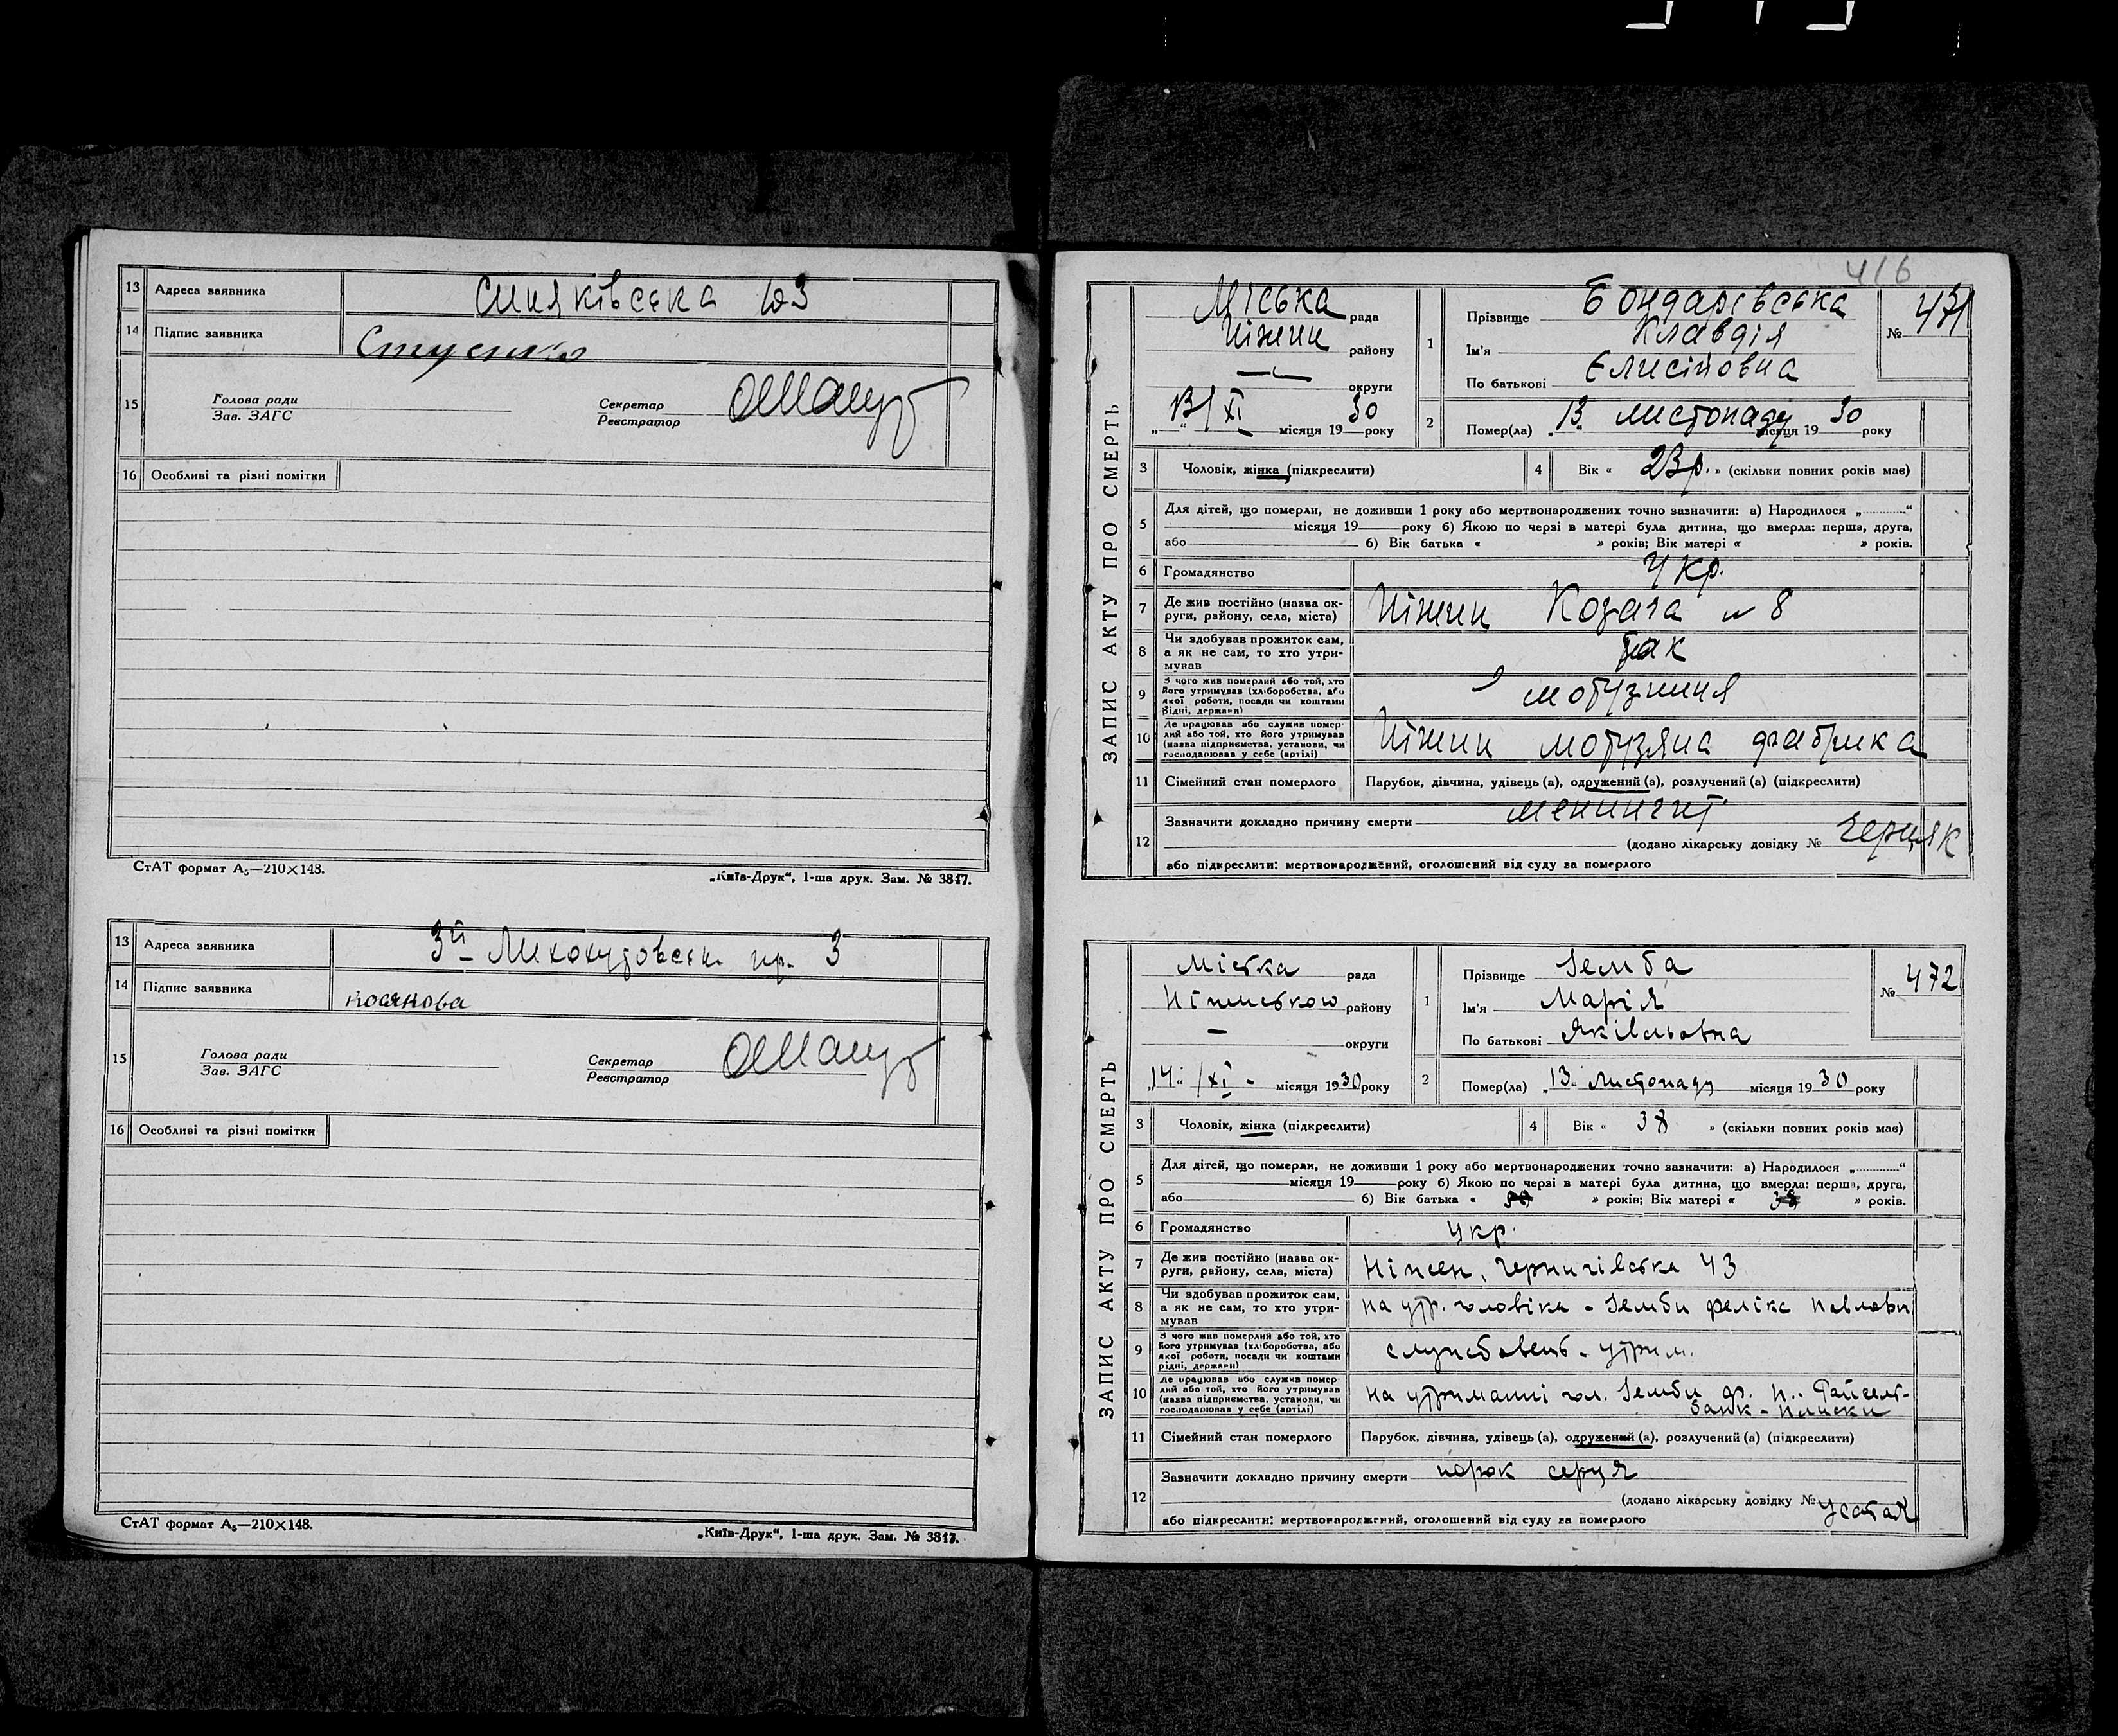 13 Адреса заявника Синяківська 103
14 Підпис заявника
15 Голова ради
Зав. ЗАГС
Секретар
Реєстратор
16 Особливі та різні помітки
СтАТ формат А₅—210×148.
„Київ-Друк“, 1-ша друк. Зам. № 3817.
13 Адреса заявника 3й пр. 3
14 Підпис заявника Косякова
15 Голова ради
Зав. ЗАГС
Секретар
Реєстратор
16 Особливі та різні помітки
СтАТ формат А₅—210×148.
„Київ-Друк“, 1-ша друк. Зам. № 3817.
416
ЗАПИС АКТУ ПРО СМЕРТЬ
Міська рада
Ніжин району
— округи
„13“/XI місяця 1930 року
1 Прізвище Бондарівська
Ім'я Клавдія
По батькові Єлисіповна
№ 471
2 Помер(ла) „13“ листопаду місяця 1930 року
3 Чоловік, жінка (підкреслити)
4 Вік « 23 р. » (скільки повних років має)
5 Для дітей, що померли, не доживши 1 року або мертвонароджених точно зазначити: а) Народилося „..........“
місяця 19 року б) Якою по черзі в матері була дитина, що вмерла: перша, друга,
або 6) Вік батька « » років; Вік матері « » років.
6 Громадянство Укр.
7 Де жив постійно (назва округи, району, села, міста) Ніжин Козача № 8
8 Чи здобував прожиток сам, а як не сам, то хто утримував так
9 З чого жив померлий або той, хто його утримував (хліборобства, або якої роботи, посади чи коштами рідні, держави) мотузниця
10 Де працював або служив померлий або той, хто його утримував (назва підприємства, установи, чи господарював у себе (артілі) Ніжин мотузяна фабрика
11 Сімейний стан померлого Парубок, дівчина, удівець (а), одружений (а), розлучений (а) (підкреслити)
12 Зазначити докладно причину смерти менингит
(додано лікарську довідку № Черняк
або підкреслити: мертвонароджений, оголошений від суду за померлого
ЗАПИС АКТУ ПРО СМЕРТЬ
Міська рада
Ніженською району
— округи
„14“/XI - місяця 1930 року
1 Прізвище Земба
Ім'я Марія
По батькові Яківльовна
№ 472
2 Помер(ла) „13“ Листопаду місяця 1930 року
3 Чоловік, жінка (підкреслити)
4 Вік « 38 » (скільки повних років має)
5 Для дітей, що померли, не доживши 1 року або мертвонароджених точно зазначити: а) Народилося „..........“
місяця 19 року б) Якою по черзі в матері була дитина, що вмерла: перша, друга,
або 6) Вік батька « » років; Вік матері « 38 » років.
6 Громадянство Укр.
7 Де жив постійно (назва округи, району, села, міста) Ніжен, Чернигівська 43
8 Чи здобував прожиток сам, а як не сам, то хто утримував на утр. чоловіка - Земби Фелікс Павлович
9 З чого жив померлий або той, хто його утримував (хліборобства, або якої роботи, посади чи коштами рідні, держави) службовець - утрим.
10 Де працював або служив померлий або той, хто його утримував (назва підприємства, установи, чи господарював у себе (артілі) на утриманні чол. Земби Ф. П. -
банк - Плиски
11 Сімейний стан померлого Парубок, дівчина, удівець (а), одружений (а), розлучений (а) (підкреслити)
12 Зазначити докладно причину смерти порок серця
(додано лікарську довідку №
або підкреслити: мертвонароджений, оголошений від суду за померлого